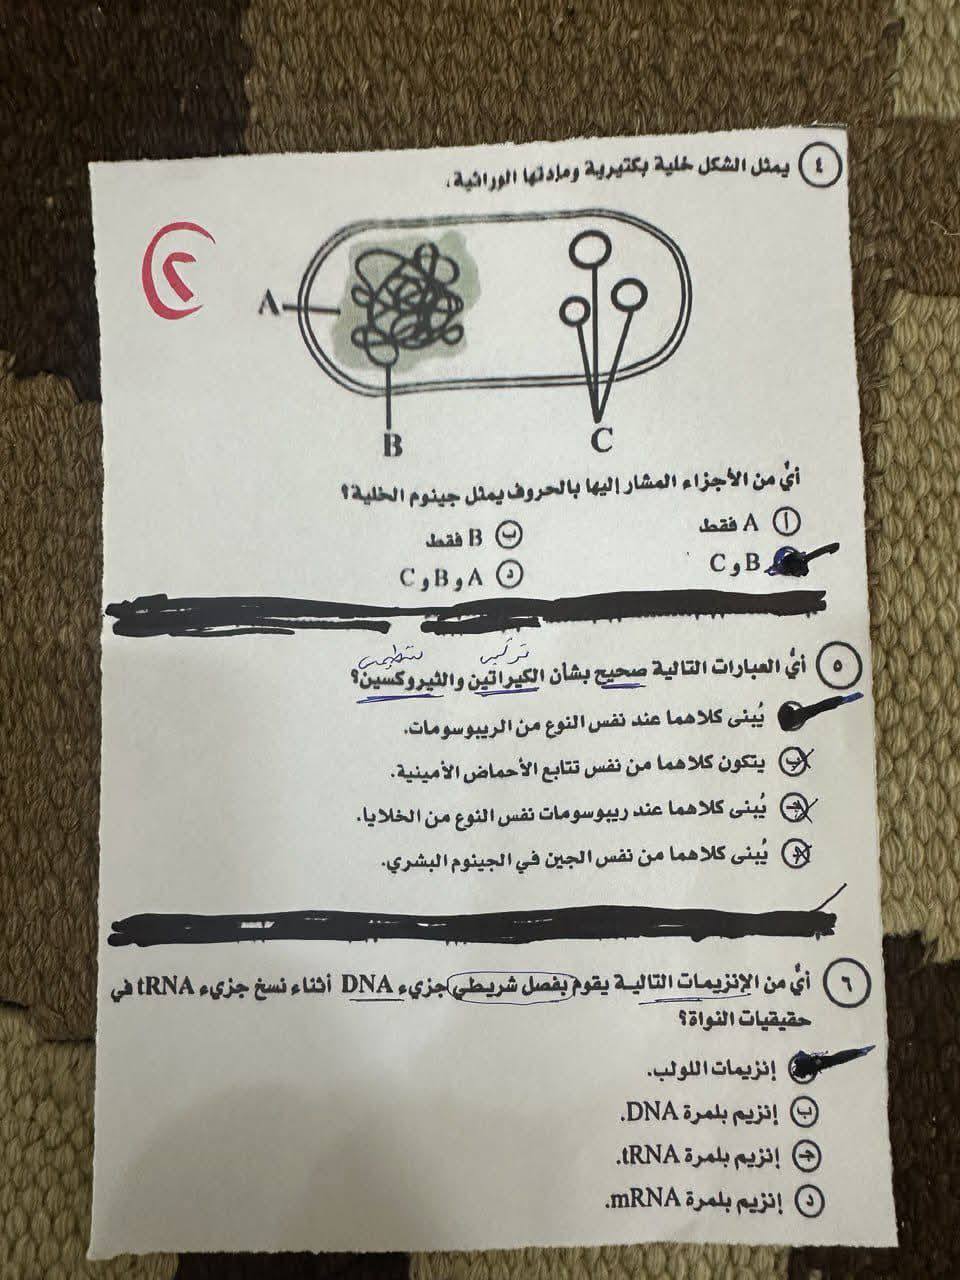 ٤ يمثل الشكل خلية بكتيرية ومادتها الوراثية.
٢
A
B
C
أيٌّ من الأجزاء المشار إليها بالحروف يمثل جينوم الخلية؟
أ A فقط
ب B فقط
B و C
د A و B و C
تركيب تنظيمي
٥ أيُّ العبارات التالية صحيح بشأن الكيراتين والثيروكسين؟
يُبنى كلاهما عند نفس النوع من الريبوسومات.
ب يتكون كلاهما من نفس تتابع الأحماض الأمينية.
ج يُبنى كلاهما عند ريبوسومات نفس النوع من الخلايا.
د يُبنى كلاهما من نفس الجين في الجينوم البشري.
٦ أيٌّ من الإنزيمات التالية يقوم بفصل شريطي جزيء DNA أثناء نسخ جزيء tRNA في
حقيقيات النواة؟
إنزيمات اللولب.
ب إنزيم بلمرة DNA.
ج إنزيم بلمرة tRNA.
د إنزيم بلمرة mRNA.